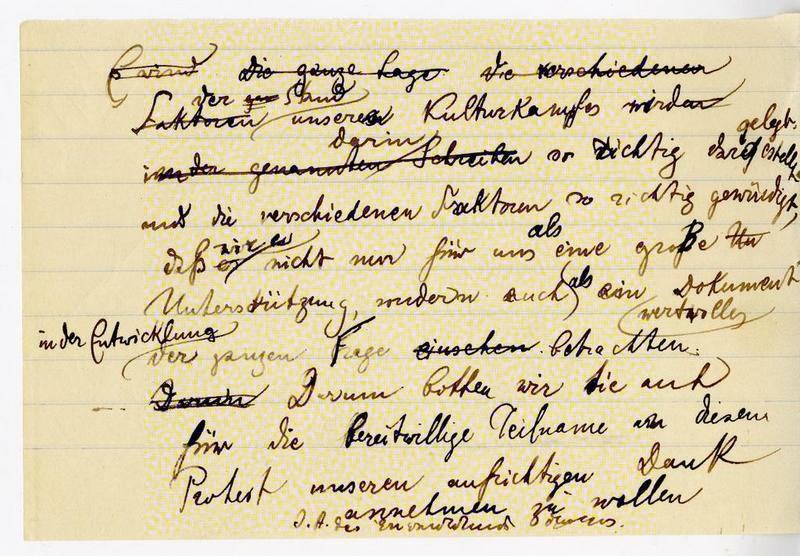 wird die ganze Lage die verschiedenen
der Stand
Faktoren unseres Kulturkampfes wirden
darin gelegt
in der genannten Schreiben so richtig dargestellt
und die verschiedenen Faktoren so richtig gewürdigt,
daß wir es nicht nur für uns als eine große Un
Unterstützung, sondern auch als ein Dokument
wertvolles
in der Entwicklung
der ganzen Frage einsehen betrachten.
Darum Darum bitten wir Sie auch
für die bereitwillige Teilname an diesem
Protest unseren aufrichtigen Dank
annehmen zu wollen
I. A. des